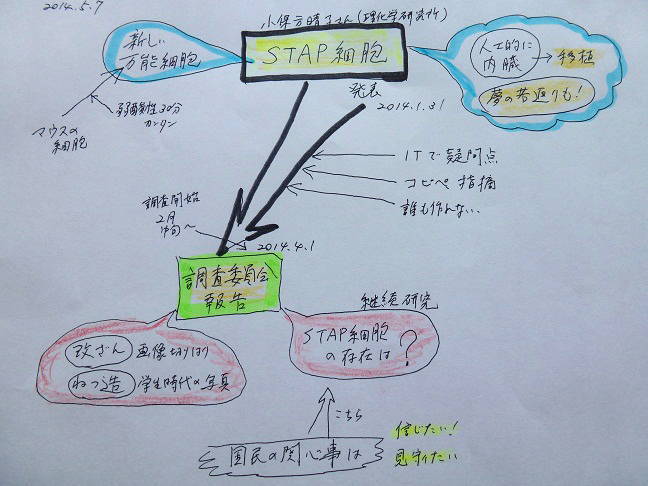 2014.5.7
小保方晴子さん(理化学研究所)
STAP細胞
新しい
万能細胞
人工的に
内臓
移植
夢の若返りも!
マウスの
細胞
弱酸性30分
カンタン
発表
2014.1.31
ITで疑問点
コピペ指摘
誰も作れない..
調査開始
2月
中旬〜
2014.4.1
調査委員会
報告
改ざん 画像切りはり
ねつ造 学生時代の写真
継続研究
STAP細胞
の存在は?
こちら
国民の関心事は
信じたい!
見守りたい